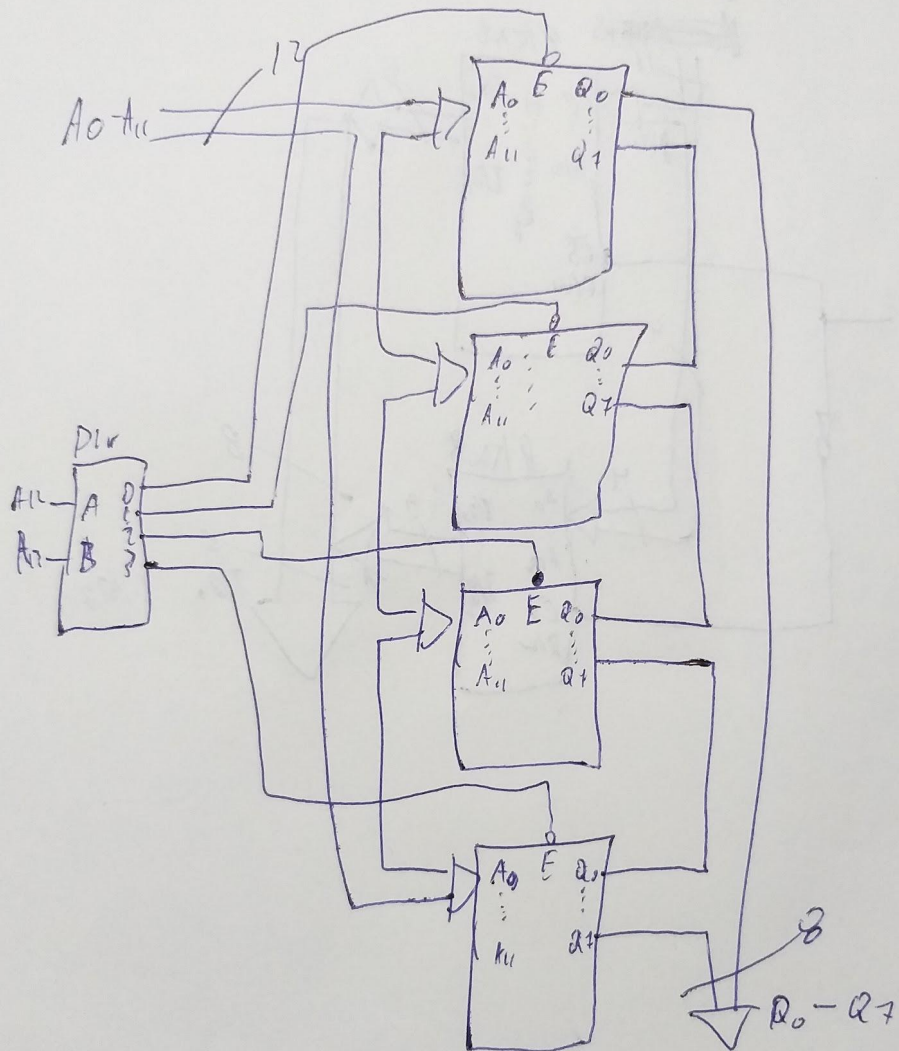 12
A0-A11
A0 E Q0
A11 Q7
A0 E Q0
A11 Q7
A12 A 0
1
2
A13 B 3
A0 E Q0
A11 Q7
A0 E Q0
A11 Q7
8
Q0-Q7